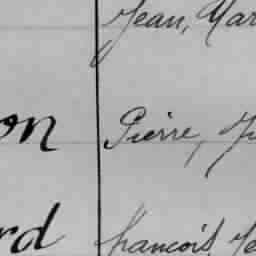 Jean, Mar
on Pierre,
rd francois,